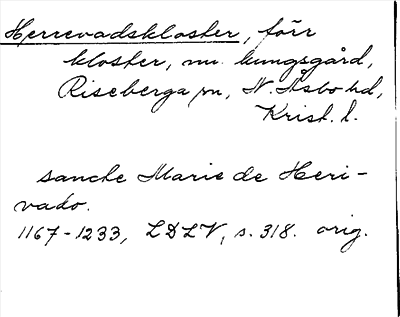 Herrevadskloster, förr
kloster, nu. kungsgård,
Riseberga sn, N. Åsbo hd,
Krist. l.
sancte Marie de Heri-
vado.
1167-1233, LDLV, s. 318. orig.